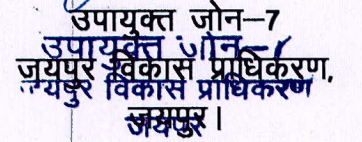 उपायुक्त जोन–7
उपायुक्त जोन–7
जयपुर विकास प्राधिकरण,
जयपुर विकास प्राधिकरण
जयपुर।
जयपुर